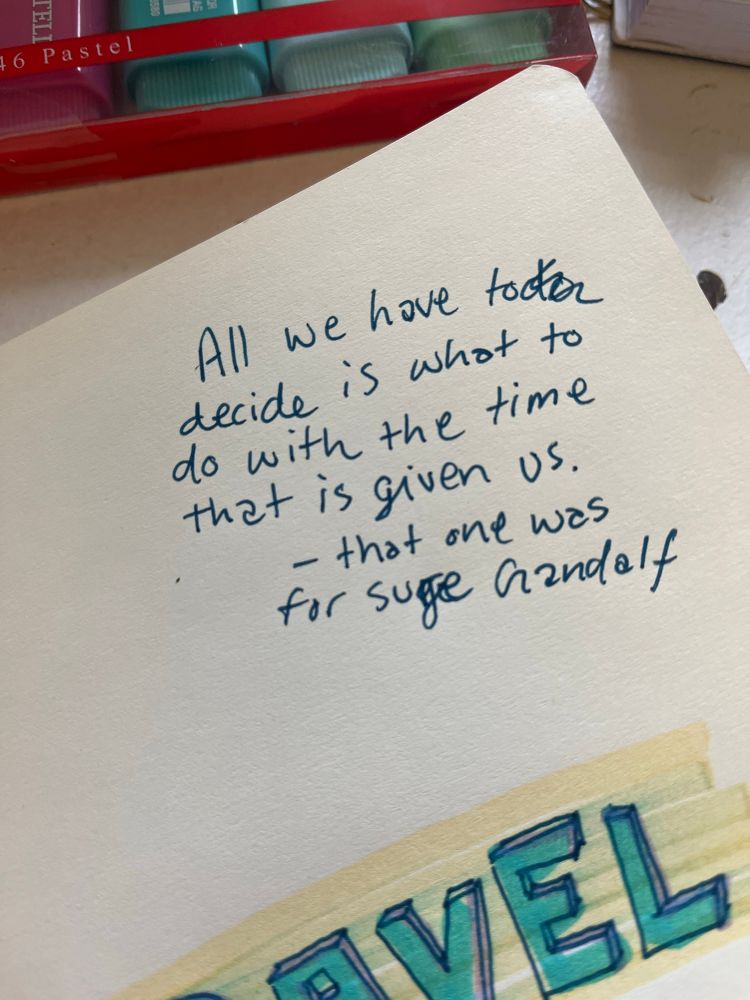 TELL
46 Pastel
All we have to
decide is what to
do with the time
that is given us.
– that one was
for sure Gandalf
AVEL